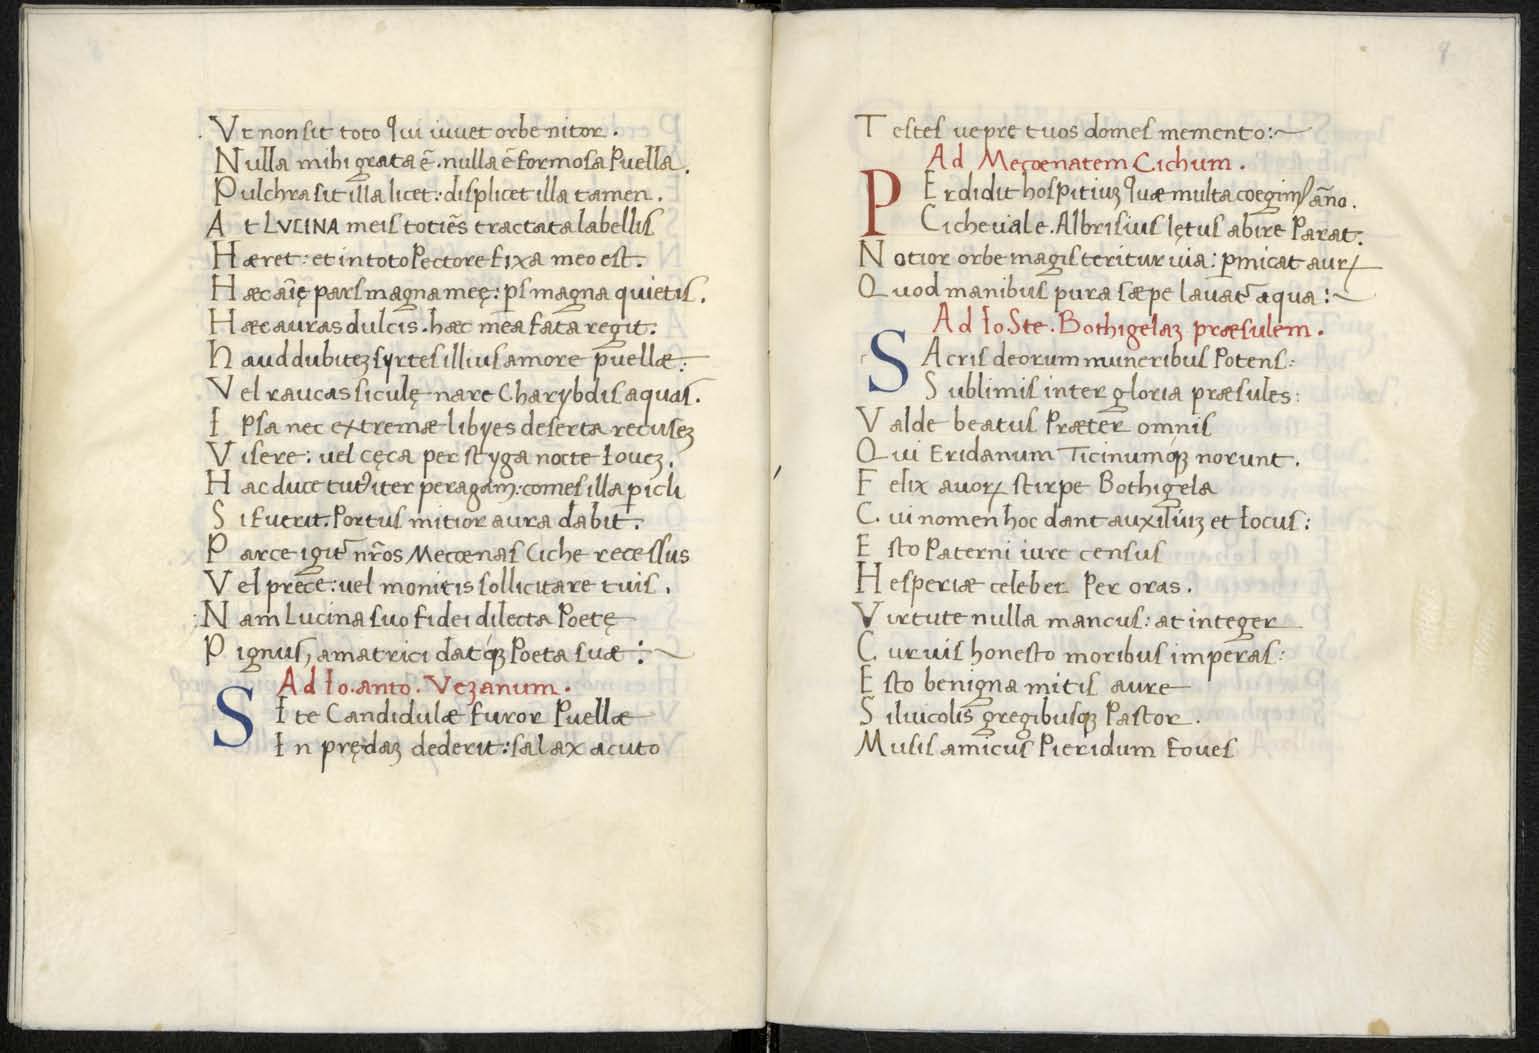 Vt non sit toto qui iuuet orbe nitor.
Nulla mihi grata ē. nulla ē formosa Puella.
Pulchra sit illa licet: displicet illa tamen.
At LVCINA meis totiēs tractata labellis
Hæret: et in toto Pectore fixa meo est.
Hæc aīę pars magna meę: ps magna quietis.
Hæc auras dulcis. hæc mea fata regit.
Haud dubitez syrtes illius amore puellæ:
Vel raucas siculę nare Charybdis aquas.
Ipsa nec extremæ libyes deserta recusez
Visere: vel cęca per styga nocte Iouez.
Hac duce iter peragam: comes illa picli
Si fuerit. Portus mitior aura dabit.
Parce igit nr̄os Mecœnas Ciche recessus
Vel prece: uel monitis sollicitare tuis.
Nam Lucina suo fidei dilecta Poetę
Pignus, amatrici datqꝫ Poeta suæ:~
Ad Io. anto. Vezanum.
SI te Candidulæ furor Puellæ
In prędaz dederit: salax acuto
8
Testes uepre tuos domes memento:~
Ad Meçœnatem Cichum.
PErdidit hospitiuz quæ multa coegim⁹ año.
Ciche uale. Albrisius lętus abire Parat.
Notior orbe magis teritur uia: pmicat auꝝ
Quod manibus pura sæpe lauat aqua:~
Ad Io. Ste. Bothigelaz præsulem.
SAcris deorum muneribus Potens:
Sublimis inter gloria præsules:
Valde beatus Præter omnis
Qui Eridanum Ticinumqꝫ norunt.
Felix auoꝝ stirpe Bothigela
Cui nomen hoc dant auxiliuz et Iocus:
Esto Paterni iure census
Hesperiæ celeber Per oras.
Virtute nulla mancus: at integer
Cur uis honesto moribus imperas:
Esto benigna mitis aure
Siluicolis gregibusqꝫ Pastor.
Musis amicus Pieridum foues